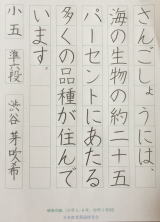 さんごしょうには、
海の生物の約二十五
パーセントにあたる
多くの品種が住んで
います。
小五 準六段 渋谷 芽吹希